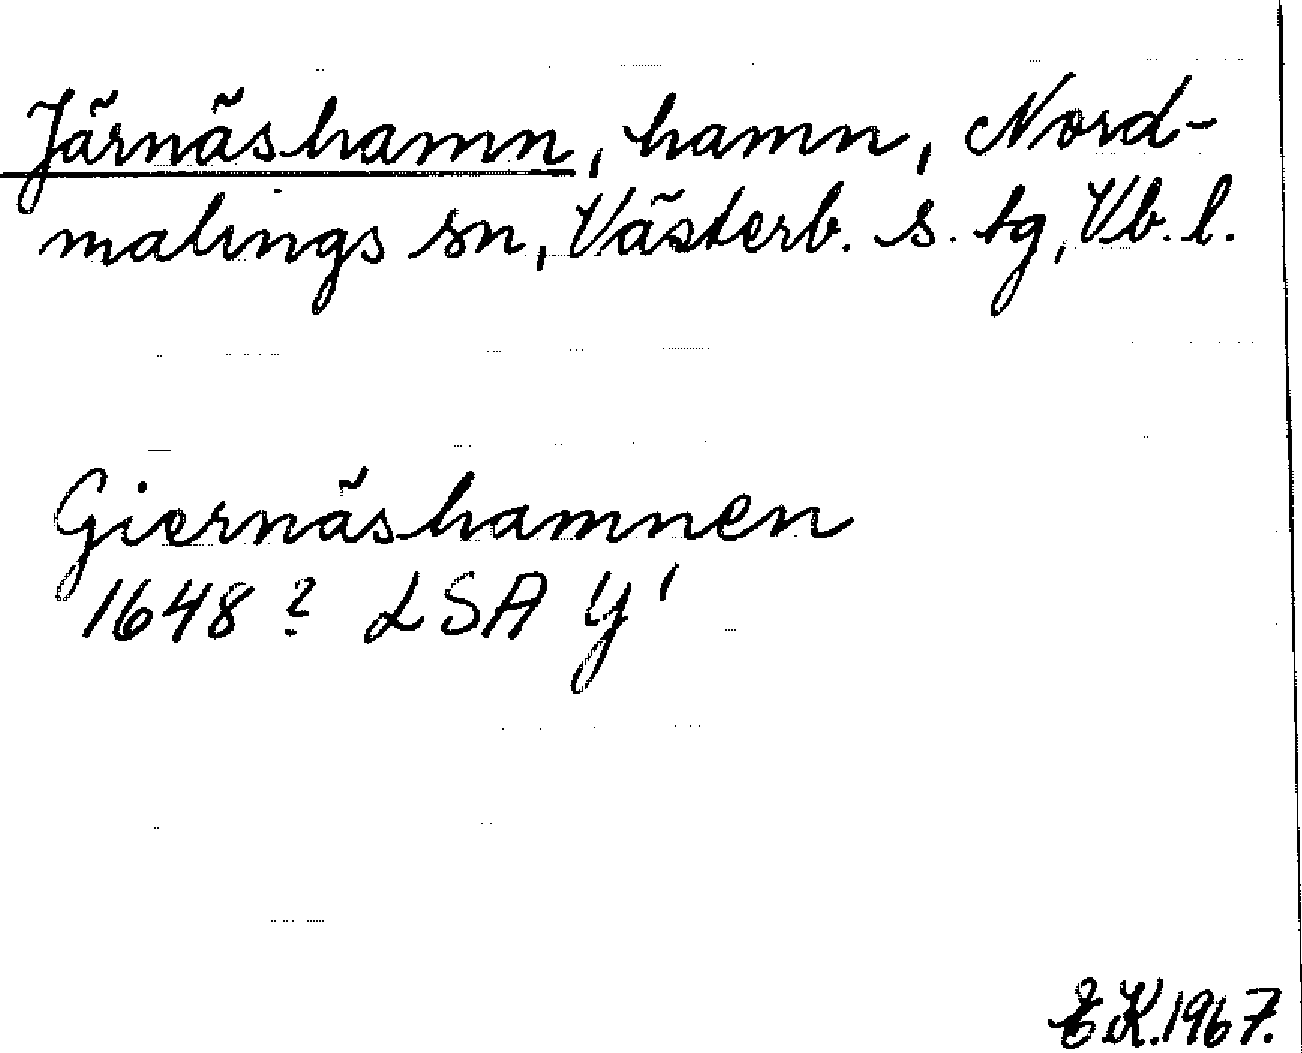 Järnäshamn, hamn, Nord-
malings sn, Västerb. s. tg, Vb. l.
Giernäshamnen
1648? LSA Y'
E.K. 1967.